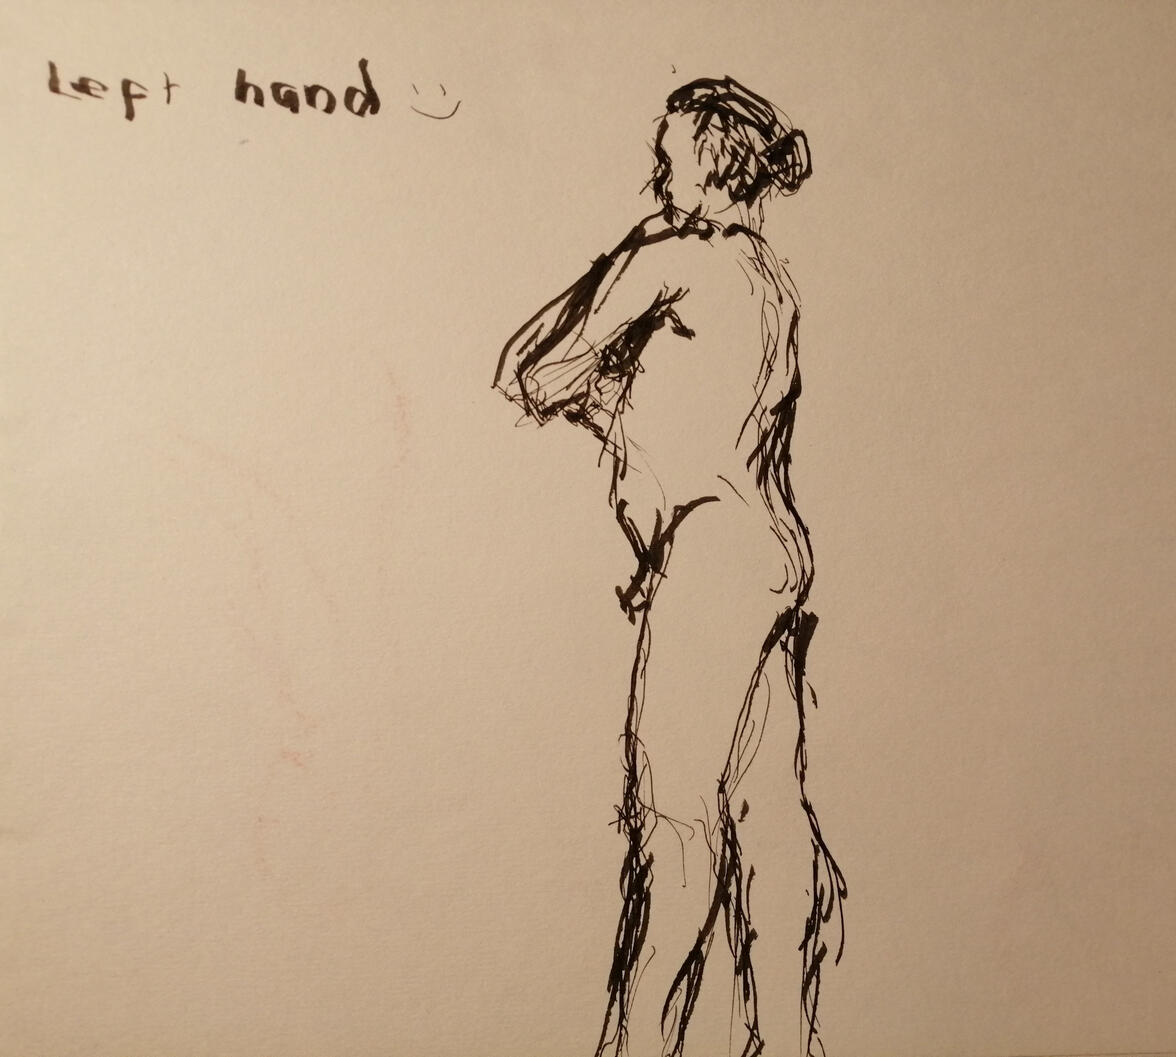 Left hand :)